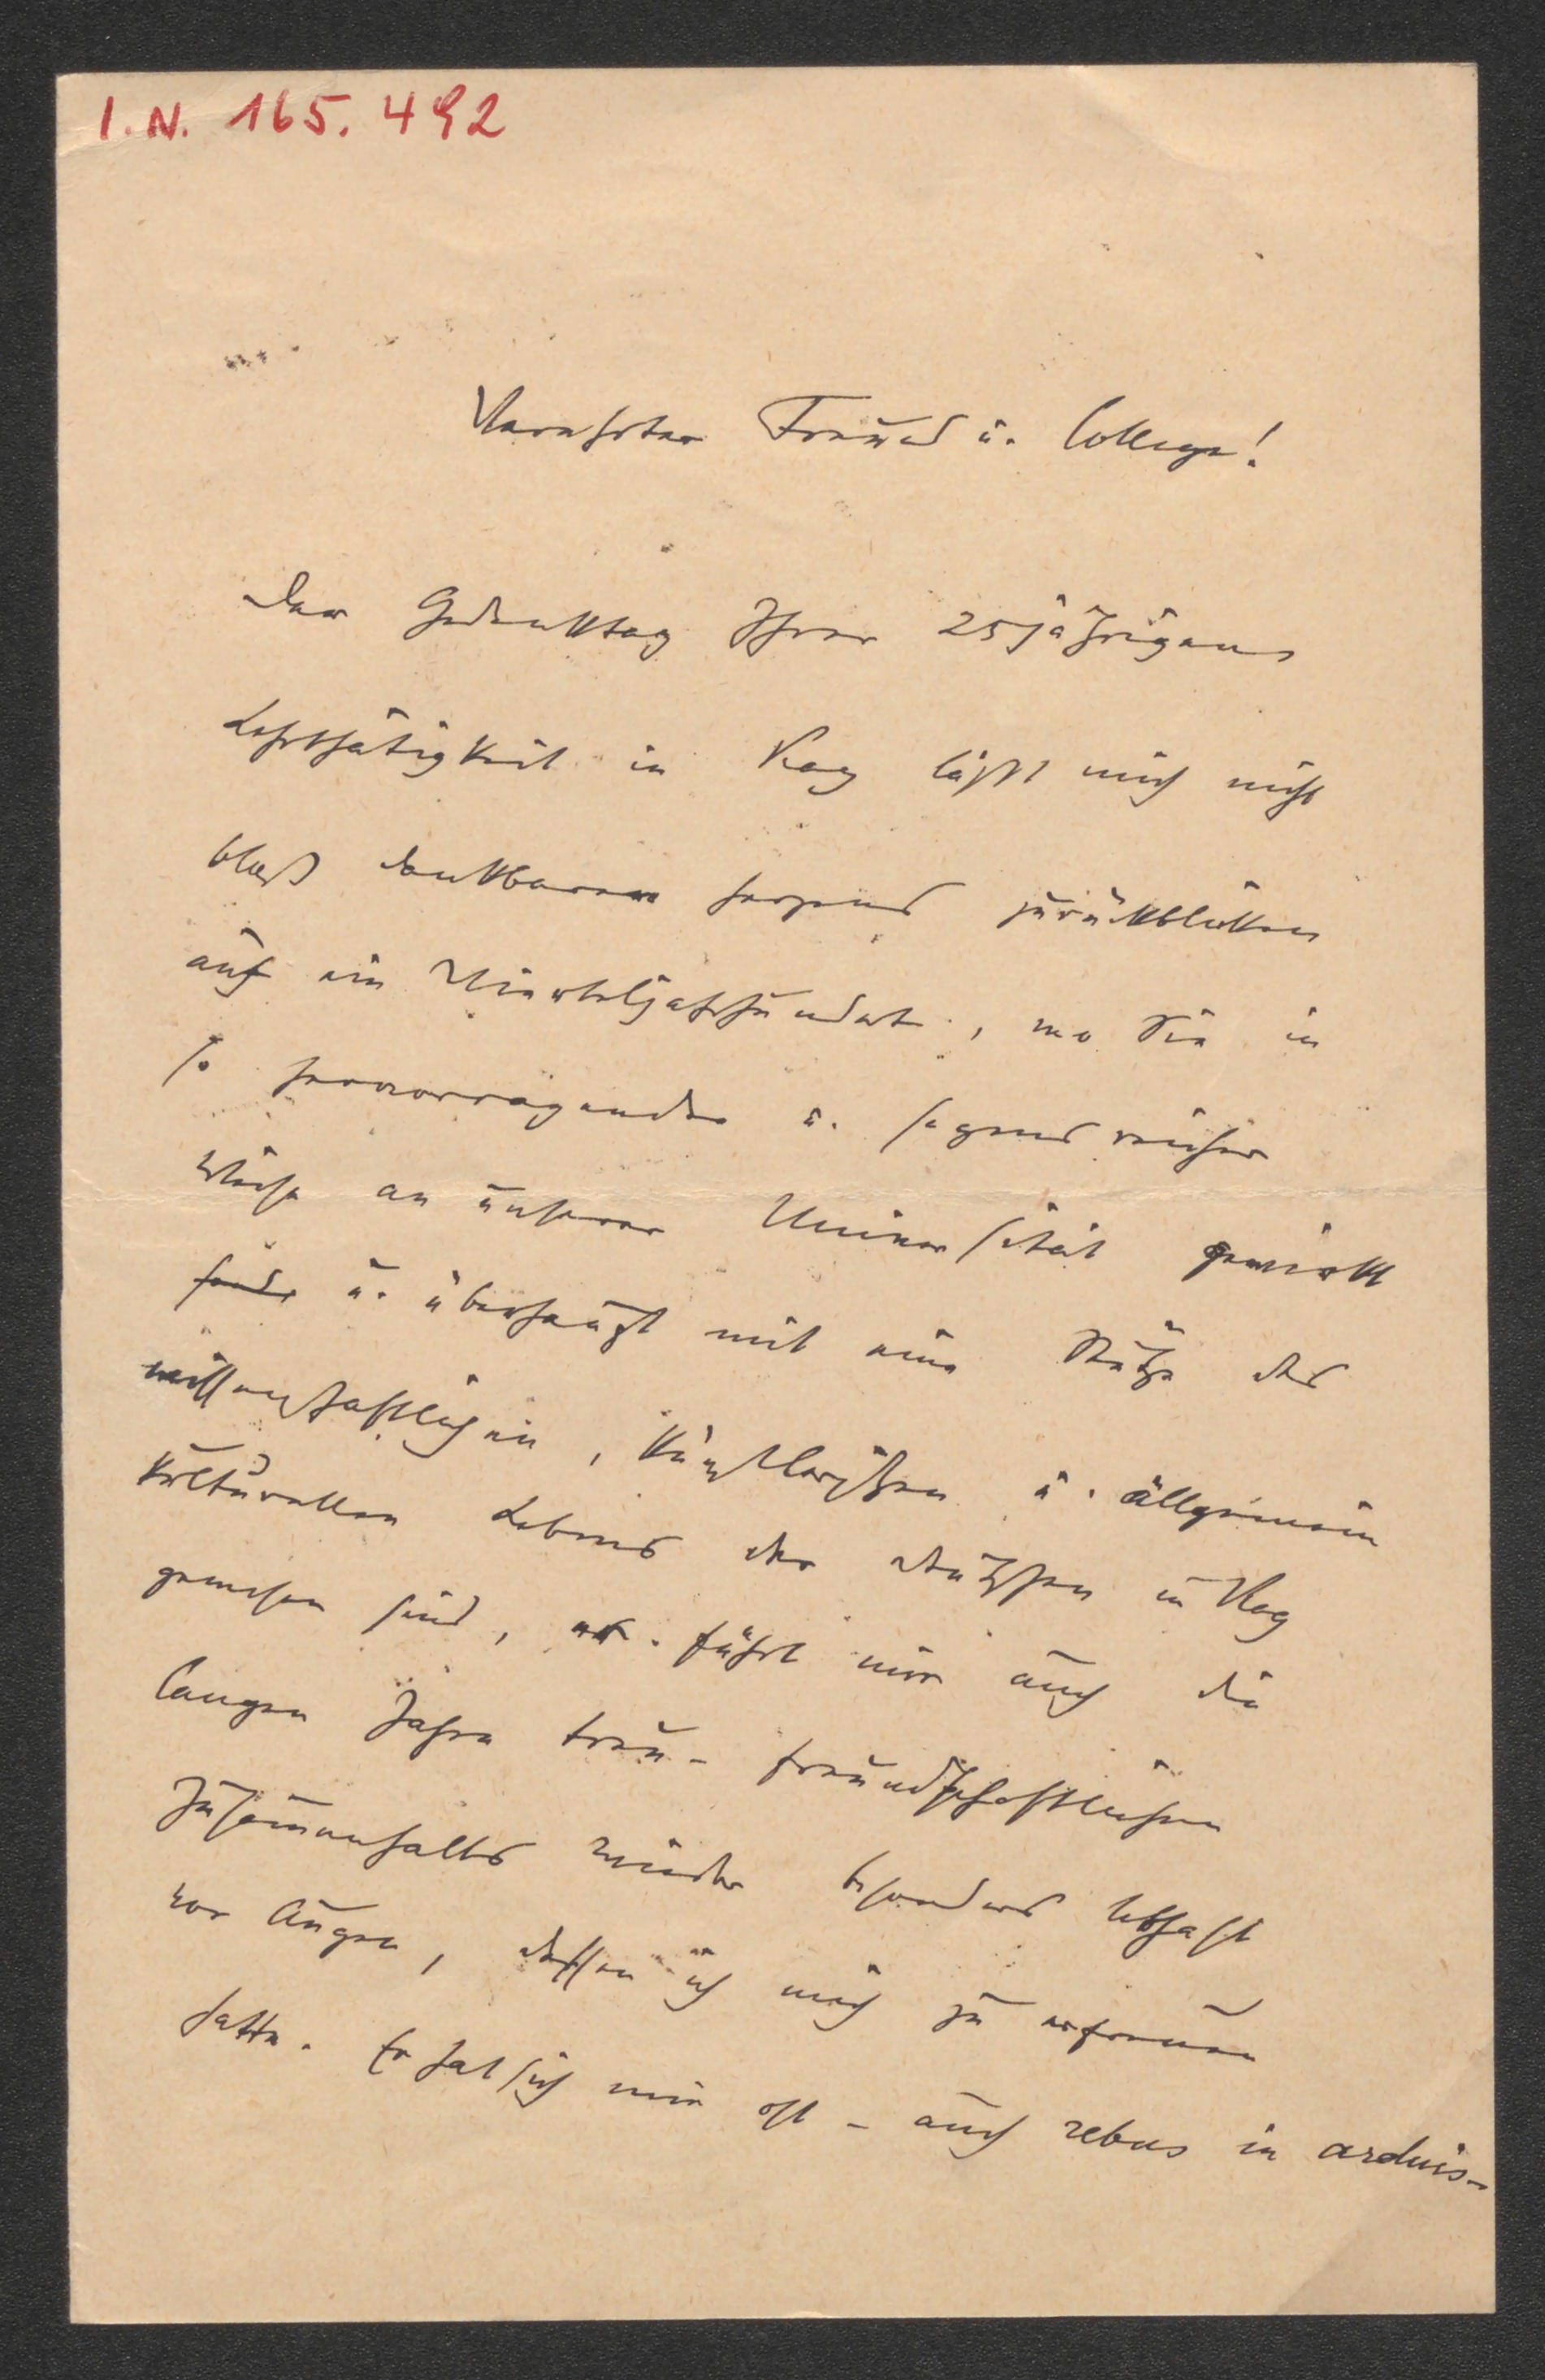 I. N. 165.492
Verehrter Freund u. College!
Der Gedenktag Ihrer 25jährigen
Lehrthätigkeit in Prag läßt mich nicht
bloß dankbaren Herzens zurückblicken
auf ein Vierteljahrhundert, wo Sie in
so hervorragender u. segensreicher
Weise an unserer Universität gewirkt
u. überhaupt mit eine Stütze des
wissenschaftlichen, künstlerischen u. allgemein
kulturellen Lebens der Deutschen in Prag
gewesen sind, er führt mir auch die
langen Jahre treu-freundschaftlichen
Zusammenhalts wieder besonders lebhaft
vor Augen, dessen ich mich zu erfreuen
hatte. Er hat sich mir oft – auch rebus in arduis –